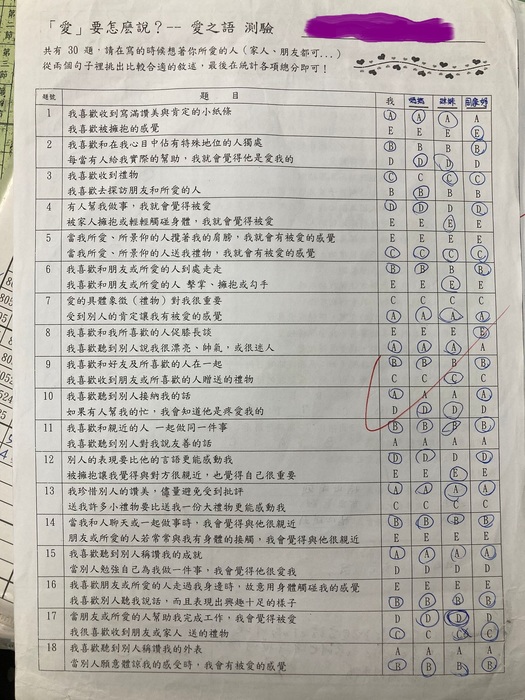 「愛」要怎麼說？-- 愛之語 測驗
共有 30 題，請在寫的時候想著你所愛的人（家人、朋友都可...）
從兩個句子裡挑出比較合適的敘述，最後在統計各項總分即可！
題號 題 目 我 媽媽 妹妹
1 我喜歡收到寫滿讚美與肯定的小紙條 A A A A
我喜歡被擁抱的感覺 E E E E
2 我喜歡和在我心目中佔有特殊地位的人獨處 B B B B
每當有人給我實際的幫助，我就會覺得他是愛我的 D D D D
3 我喜歡收到禮物 C C C C
我喜歡去探訪朋友和所愛的人 B B B B
4 有人幫我做事，我就會覺得被愛 D D D D
被家人擁抱或輕輕觸碰身體，我就會覺得被愛 E E E E
5 當我所愛、所景仰的人攬著我的肩膀，我就會有被愛的感覺 E E E E
當我所愛、所景仰的人送我禮物，我就會有被愛的感覺 C C C C
6 我喜歡和朋友或所愛的人到處走走 B B B B
我喜歡和朋友或所愛的人 擊掌、擁抱或勾手 E E E E
7 愛的具體象徵（禮物）對我很重要 C C C C
受到別人的肯定讓我有被愛的感覺 A A A A
8 我喜歡和我所喜歡的人促膝長談 E E E E
我喜歡聽到別人說我很漂亮、帥氣，或很迷人 A A A A
9 我喜歡和好友及所喜歡的人在一起 B B B B
我喜歡收到朋友或所喜歡的人贈送的禮物 C C C C
10 我喜歡聽到別人接納我的話 A A A A
如果有人幫我的忙，我會知道他是疼愛我的 D D D D
11 我喜歡和親近的人 一起做同一件事 B B B B
我喜歡聽到別人對我說友善的話 A A A A
12 別人的表現要比他的言語更能感動我 D D D D
被擁抱讓我覺得與對方很親近，也覺得自己很重要 E E E E
13 我珍惜別人的讚美，儘量避免受到批評 A A A A
送我許多小禮物要比送我一份大禮物更能感動我 C C C C
14 當我和人聊天或一起做事時，我會覺得與他很親近 B B B B
朋友或所愛的人若常常與我有身體的接觸，我會覺得與他很親近 E E E E
15 我喜歡聽到別人稱讚我的成就 A A A A
當別人勉強自己為我做一件事，我會覺得他很愛我 D D D D
16 我喜歡朋友或所愛的人走過我身邊時，故意用身體觸碰我的感覺 E E E E
我喜歡別人聽我說話，而且表現出興趣十足的樣子 B B B B
17 當朋友或所愛的人幫助我完成工作，我會覺得被愛 D D D D
我很喜歡收到朋友或家人 送的禮物 C C C C
18 我喜歡聽到別人稱讚我的外表 A A A A
當別人願意體諒我的感受時，我會有被愛的感覺 B B B B